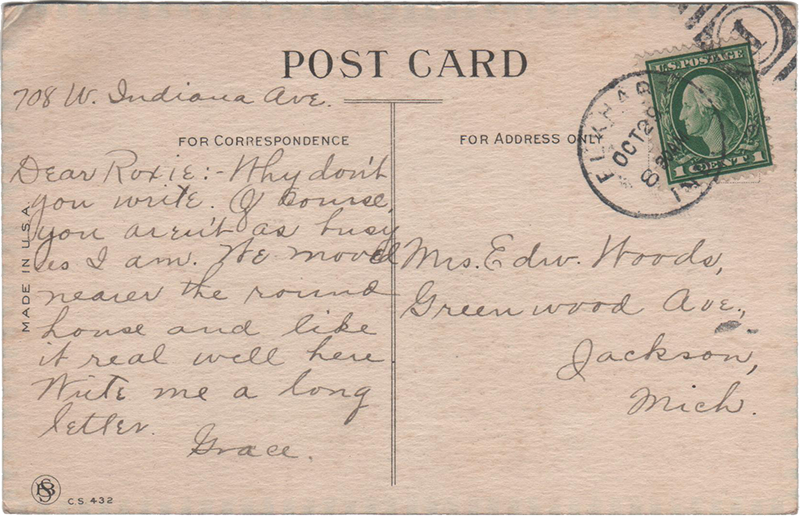 POST CARD
708 W. Indiana Ave.
FOR CORRESPONDENCE
Dear Roxie:- Why don't
you write. Of course,
you aren't as busy
as I am. We moved
nearer the round
house and like
it real well here.
Write me a long
letter.
Grace.
FOR ADDRESS ONLY
Mrs. Edw. Woods,
Greenwood Ave.,
Jackson,
Mich.
U.S. POSTAGE
1 CENT 1
ELKHART
OCT 20
8
IND
1
MADE IN U.S.A.
C.S. 432